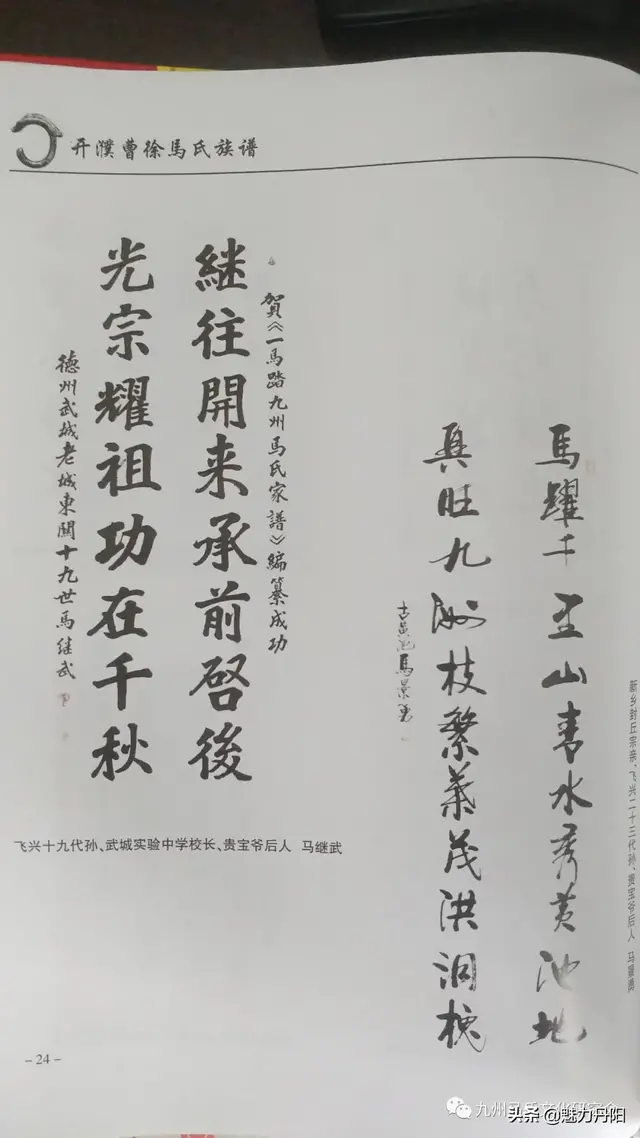 开濮曹徐馬氏族谱
賀《一馬踏九州馬氏家譜》編纂成功
継往開来承前啓後
光宗耀祖功在千秋
德州武城老城東關十九世馬继武
飞兴十九代孙、武城实验中学校长、贵宝爷后人 马继武
馬躍千里山青水秀黄池地
旺九洲枝繁葉茂洪洞槐
古黄池馬景勇
新乡封丘宗亲、飞兴二十三代孙、贵宝爷后人 马景勇
-24-
九州马氏文化研究会
头条 @魅力丹阳